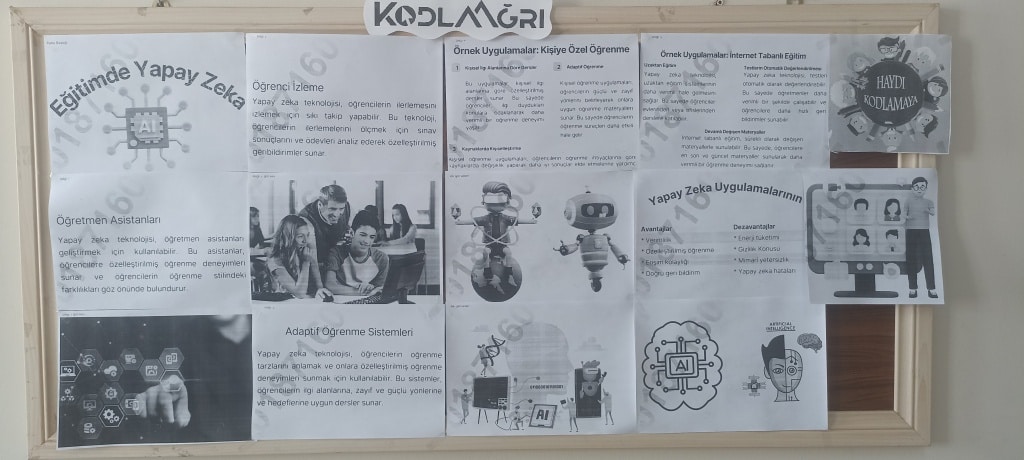 KODLAĞRI
Eğitimde Yapay Zeka
AI
Öğrenci İzleme
Yapay zeka teknolojisi, öğrencilerin ilerlemesini
izlemek için sıkı takip yapabilir. Bu teknoloji,
öğrencilerin ilerlemelerini ölçmek için sınav
sonuçlarını ve ödevleri analiz ederek özelleştirilmiş
geribildirimler sunar.
Örnek Uygulamalar: Kişiye Özel Öğrenme
1 Kişisel İlgi Alanlarına Göre Dersler
Bu uygulamalar, kişisel ilgi
alanlarına göre özelleştirilmiş
dersler sunar. Bu sayede
öğrenciler, ilgi duydukları
konulara odaklanarak daha
verimli bir öğrenme deneyimi
yaşar.
2 Adaptif Öğrenme
Kişisel öğrenme uygulamaları,
öğrencilerin güçlü ve zayıf
yönlerini belirleyerek onlara
uygun öğrenme materyalleri
sunar. Bu sayede öğrencilerin
öğrenme süreçleri daha etkili
hale gelir.
3 Kaynaklarda Kişiselleştirme
Kişisel öğrenme uygulamaları, öğrencilerin öğrenme ihtiyaçlarına göre
Örnek Uygulamalar: İnternet Tabanlı Eğitim
Uzaktan Eğitim
Yapay zeka teknolojisi,
uzaktan eğitim kullanımının
daha verimli hale gelmesini
sağlar. Bu sayede öğrenciler
Testlerin Otomatik Değerlendirilmesi
Yapay zeka teknolojisi, testleri
otomatik olarak değerlendirebilir.
Bu sayede öğretmenler daha
verimli bir şekilde çalışabilir ve
öğrencilere daha hızlı geri
bildirimler sunabilir.
Devamlı Değişen Materyaller
İnternet tabanlı eğitim, sürekli olarak değişen
materyallerle sunulabilir. Bu sayede, öğrencilere
en son ve güncel materyaller sunularak daha
verimli bir öğrenme deneyimi sağlanır.
HAYDİ
KODLAMAYA
Öğretmen Asistanları
Yapay zeka teknolojisi, öğretmen asistanları
geliştirmek için kullanılabilir. Bu asistanlar,
öğrencilere özelleştirilmiş öğrenme deneyimleri
sunar ve öğrencilerin öğrenme stilindeki
farklılıkları göz önünde bulundurur.
Yapay Zeka Uygulamalarının
Avantajlar
* Verimlilik
* Özelleştirilmiş öğrenme
* Erişim kolaylığı
* Doğru geri bildirim
Dezavantajlar
* Enerji tüketimi
* Gizlilik Konusu
* Mimari yetersizlik
* Yapay zeka hataları
Adaptif Öğrenme Sistemleri
Yapay zeka teknolojisi, öğrencilerin öğrenme
tarzlarını anlamak ve onlara özelleştirilmiş öğrenme
deneyimleri sunmak için kullanılabilir. Bu sistemler,
öğrencilerin ilgi alanlarına, zayıf ve güçlü yönlerine
ve hedeflerine uygun dersler sunar.
AI
AI
ARTIFICIAL
INTELLIGENCE